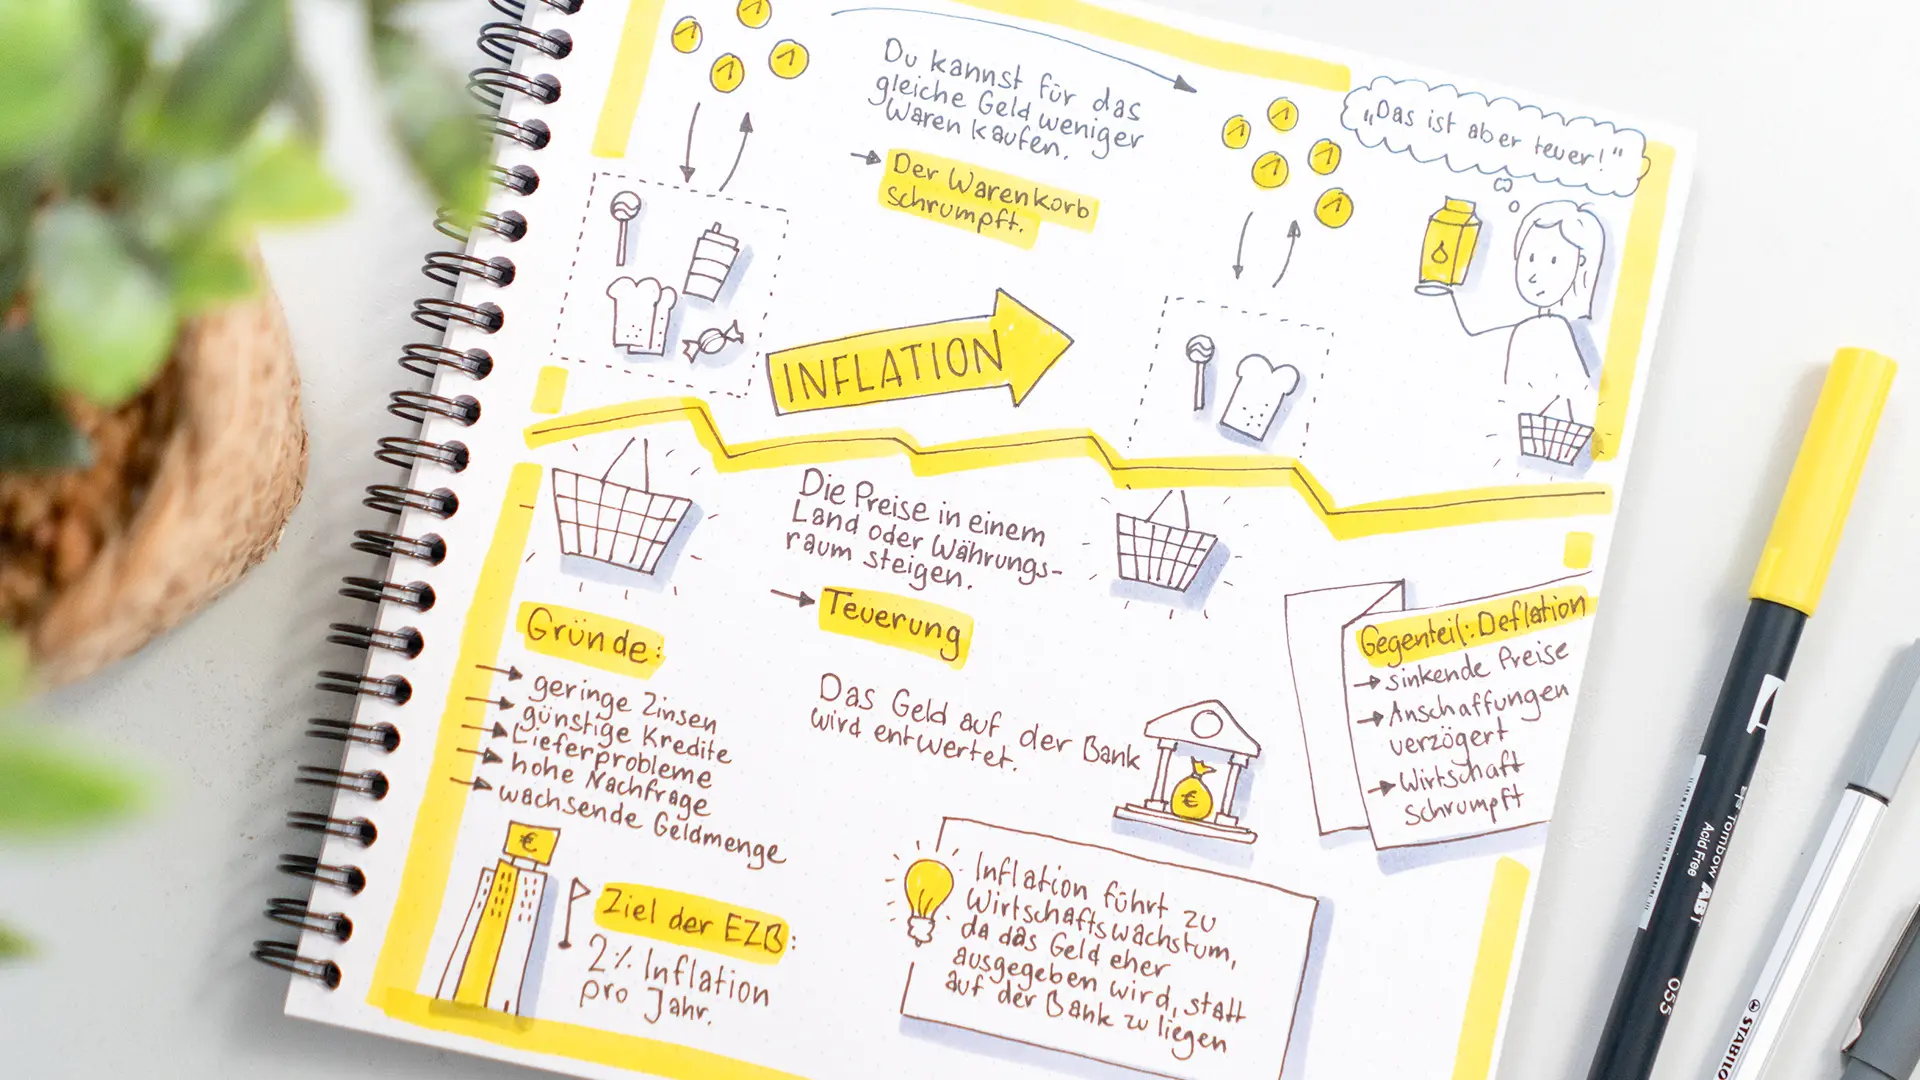 Du kannst für das
gleiche Geld weniger
Waren kaufen.
Der Warenkorb
schrumpft.
„Das ist aber teuer!"
1
1
1
1
1
1
1
1
1
INFLATION
Die Preise in einem
Land oder Währungs-
raum steigen.
Teuerung
Das Geld auf der Bank
wird entwertet.
€
Gründe:
geringe Zinsen
günstige Kredite
Lieferprobleme
hohe Nachfrage
wachsende Geldmenge
Gegenteil: Deflation
sinkende Preise
Anschaffungen
verzögert
Wirtschaft
schrumpft
€
Ziel der EZB:
2% Inflation
pro Jahr.
Inflation führt zu
Wirtschaftswachstum,
da das Geld eher
ausgegeben wird, statt
auf der Bank zu liegen
Tombow ABT
Acid Free
055
STABILO